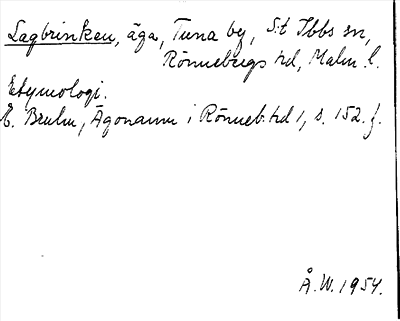 Lagbrinken, äga, Tuna by, S:t Ibbs sn,
Rönnebergs hd, Malm. l.
Etymologi.
E. Bruhn, Ägonamn i Rönneb. hd 1, s. 152. f.
Å.W. 1954.